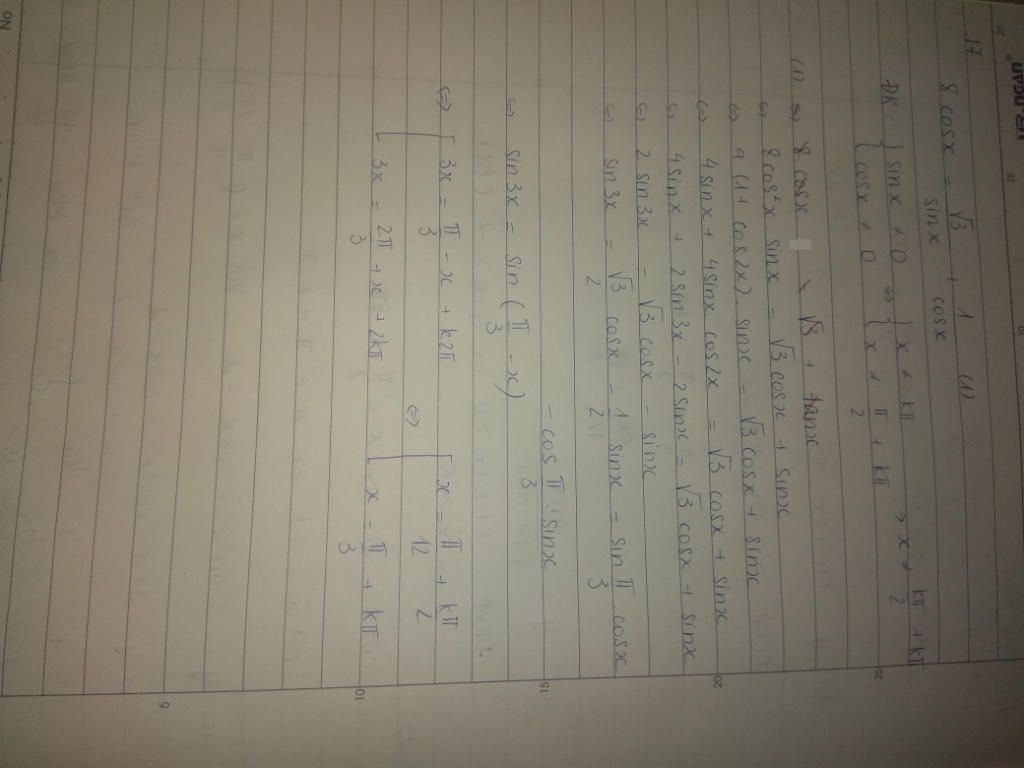 17
8 cosx = √3/sinx + 1/cosx (1)
ĐK: { sinx ≠ 0 ⇔ { x ≠ kπ → x ≠ kπ/2 + kπ
{ cosx ≠ 0 { x ≠ π/2 + kπ
(1) ⇔ 8 cosx √3 + tanx
⇔ 8cos²x sinx = √3 cosx + sinx
⇔ 4 (1 + cos2x). sinx = √3 cosx + sinx
⇔ 4 sinx + 4sinx cos2x = √3 cosx + sinx
⇔ 4sinx + 2sin3x - 2sinx = √3 cosx + sinx
⇔ 2 sin3x = √3 cosx - sinx
⇔ sin3x = √3/2 cosx - 1/2 sinx = sin π/3 cosx
- cos π/3 sinx
⇔ sin3x = sin (π/3 - x)
⇔ [ 3x = π/3 - x + k2π ⇔ [ x = π/12 + kπ/2
[ 3x = 2π/3 + x + 2kπ [ x = π/3 + kπ
5
10
15
20
25